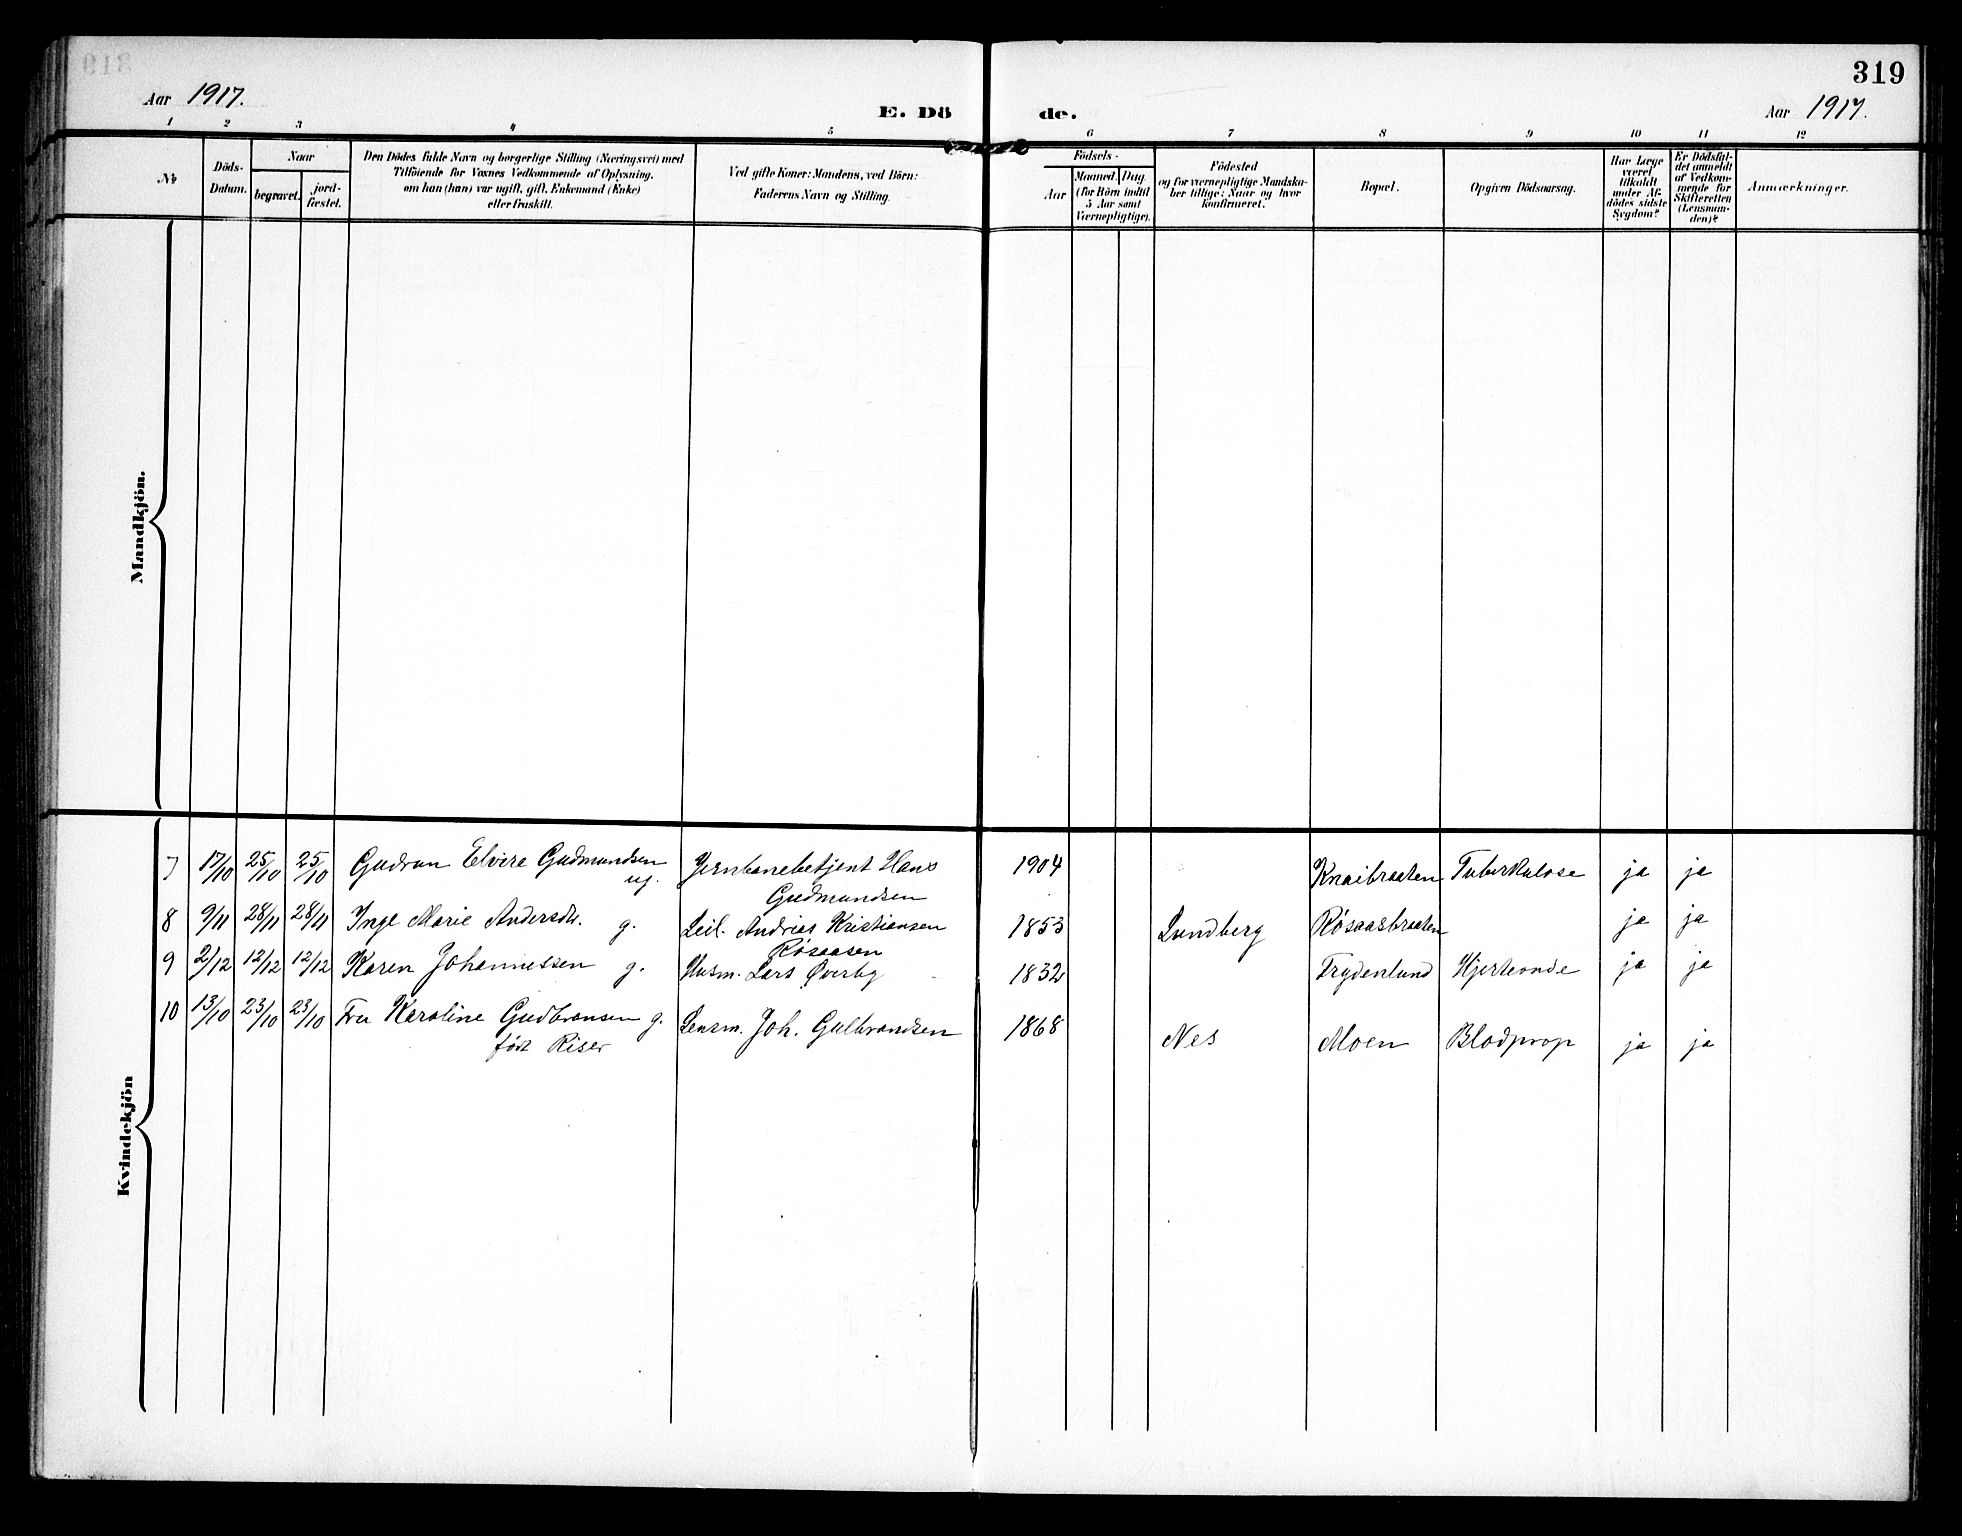 319
Aar 1917.
E. Dö de.
Aar 1917.
1 2 3 4 5 6 7 8 9 10 11 12
No
Döds-
Datum.
Naar
begravet.
jord-
fæstet.
Den Dödes fulde Navn og borgerlige Stilling (Næringsvei) med
Tilföiende for Voxnes Vedkommende af Oplysning,
om han (hun) var ugift, gift, Enkemand (Enke)
eller fraskilt.
Ved gifte Koner: Mandens, ved Börn:
Faderens Navn og Stilling.
Födsels-
Aar
Maaned. Dag.
(for Börn indtil
5 Aar samt
Værnepligtige).
Födested
og for værnepligtige Mandska-
ber tillige: Naar og hvor
konfirmeret.
Bopæl.
Opgiven Dödsaarsag.
Har Læge
været
tilkaldt
under Af-
dödes sidste
Sygdom?
Er Dödsfal-
det anmeldt
af Vedkom-
mende for
Skifteretten
(Lensman-
den)?
Anmærkninger.
Mandkjön.
Kvindekjön
7 17/10 25/10 25/10 Gudrun Elvire Gudmundsen Jernbanebetjent Hans 1904 Knaibraaten Tuberkulose ja ja
ug. Gudmundsen
8 9/11 28/11 28/11 Inge Marie Andersdtr. g. Leil. Andrias Kristiansen 1853 Lundberg Røsaasbraaten ja ja
Røsaasen
9 2/12 12/12 12/12 Karen Johannessen g. Husm. Lars Øverby 1832 Frydenlund Hjerteonde ja ja
10 13/10 23/10 23/10 Fru Karoline Gudbransen g. Lensm. Joh. Gulbrandsen 1868 Nes Moen Blodprop ja ja
født Riser